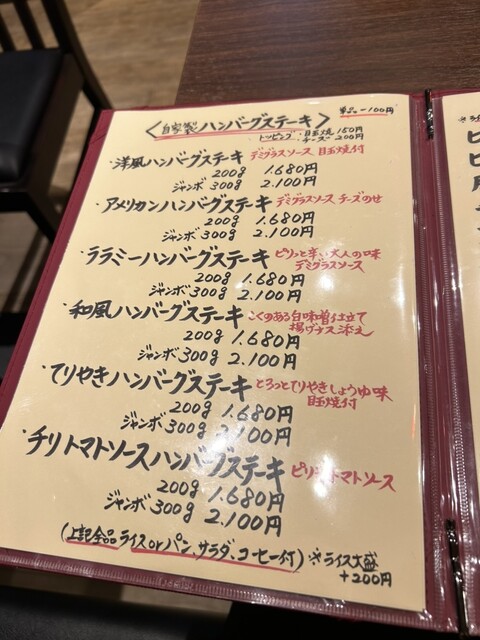 <自家製ハンバーグステーキ>
単品-100円
トッピング・目玉焼150円
チーズ 200円
・洋風ハンバーグステーキ デミグラスソース 目玉焼付
200g 1.680円
ジャンボ300g 2.100円
・アメリカンハンバーグステーキ デミグラスソース チーズのせ
200g 1.680円
ジャンボ300g 2.100円
・ララミーハンバーグステーキ ピリッと辛い大人の味
デミグラスソース
200g 1.680円
ジャンボ300g 2.100円
・和風ハンバーグステーキ こくのある白味噌仕立て
揚げナス添え
200g 1.680円
ジャンボ300g 2.100円
・てりやきハンバーグステーキ とろっとてりやきしょうゆ味
目玉焼付
200g 1.680円
ジャンボ300g 2.100円
・チリトマトソースハンバーグステーキ ピリ辛トマトソース
200g 1.680円
ジャンボ300g 2.100円
(上記全品ライスorパン、サラダ、コーヒー付) ※ライス大盛
+200円